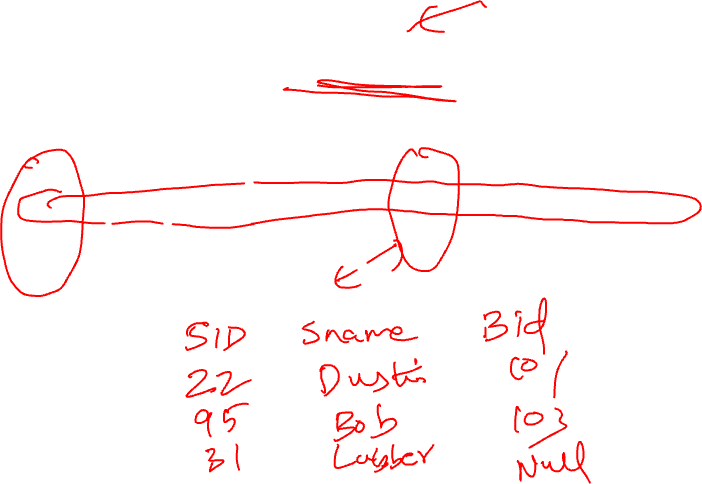 SID Sname Bid
22 Dustin 101
95 Bob 103
31 Lubber Null